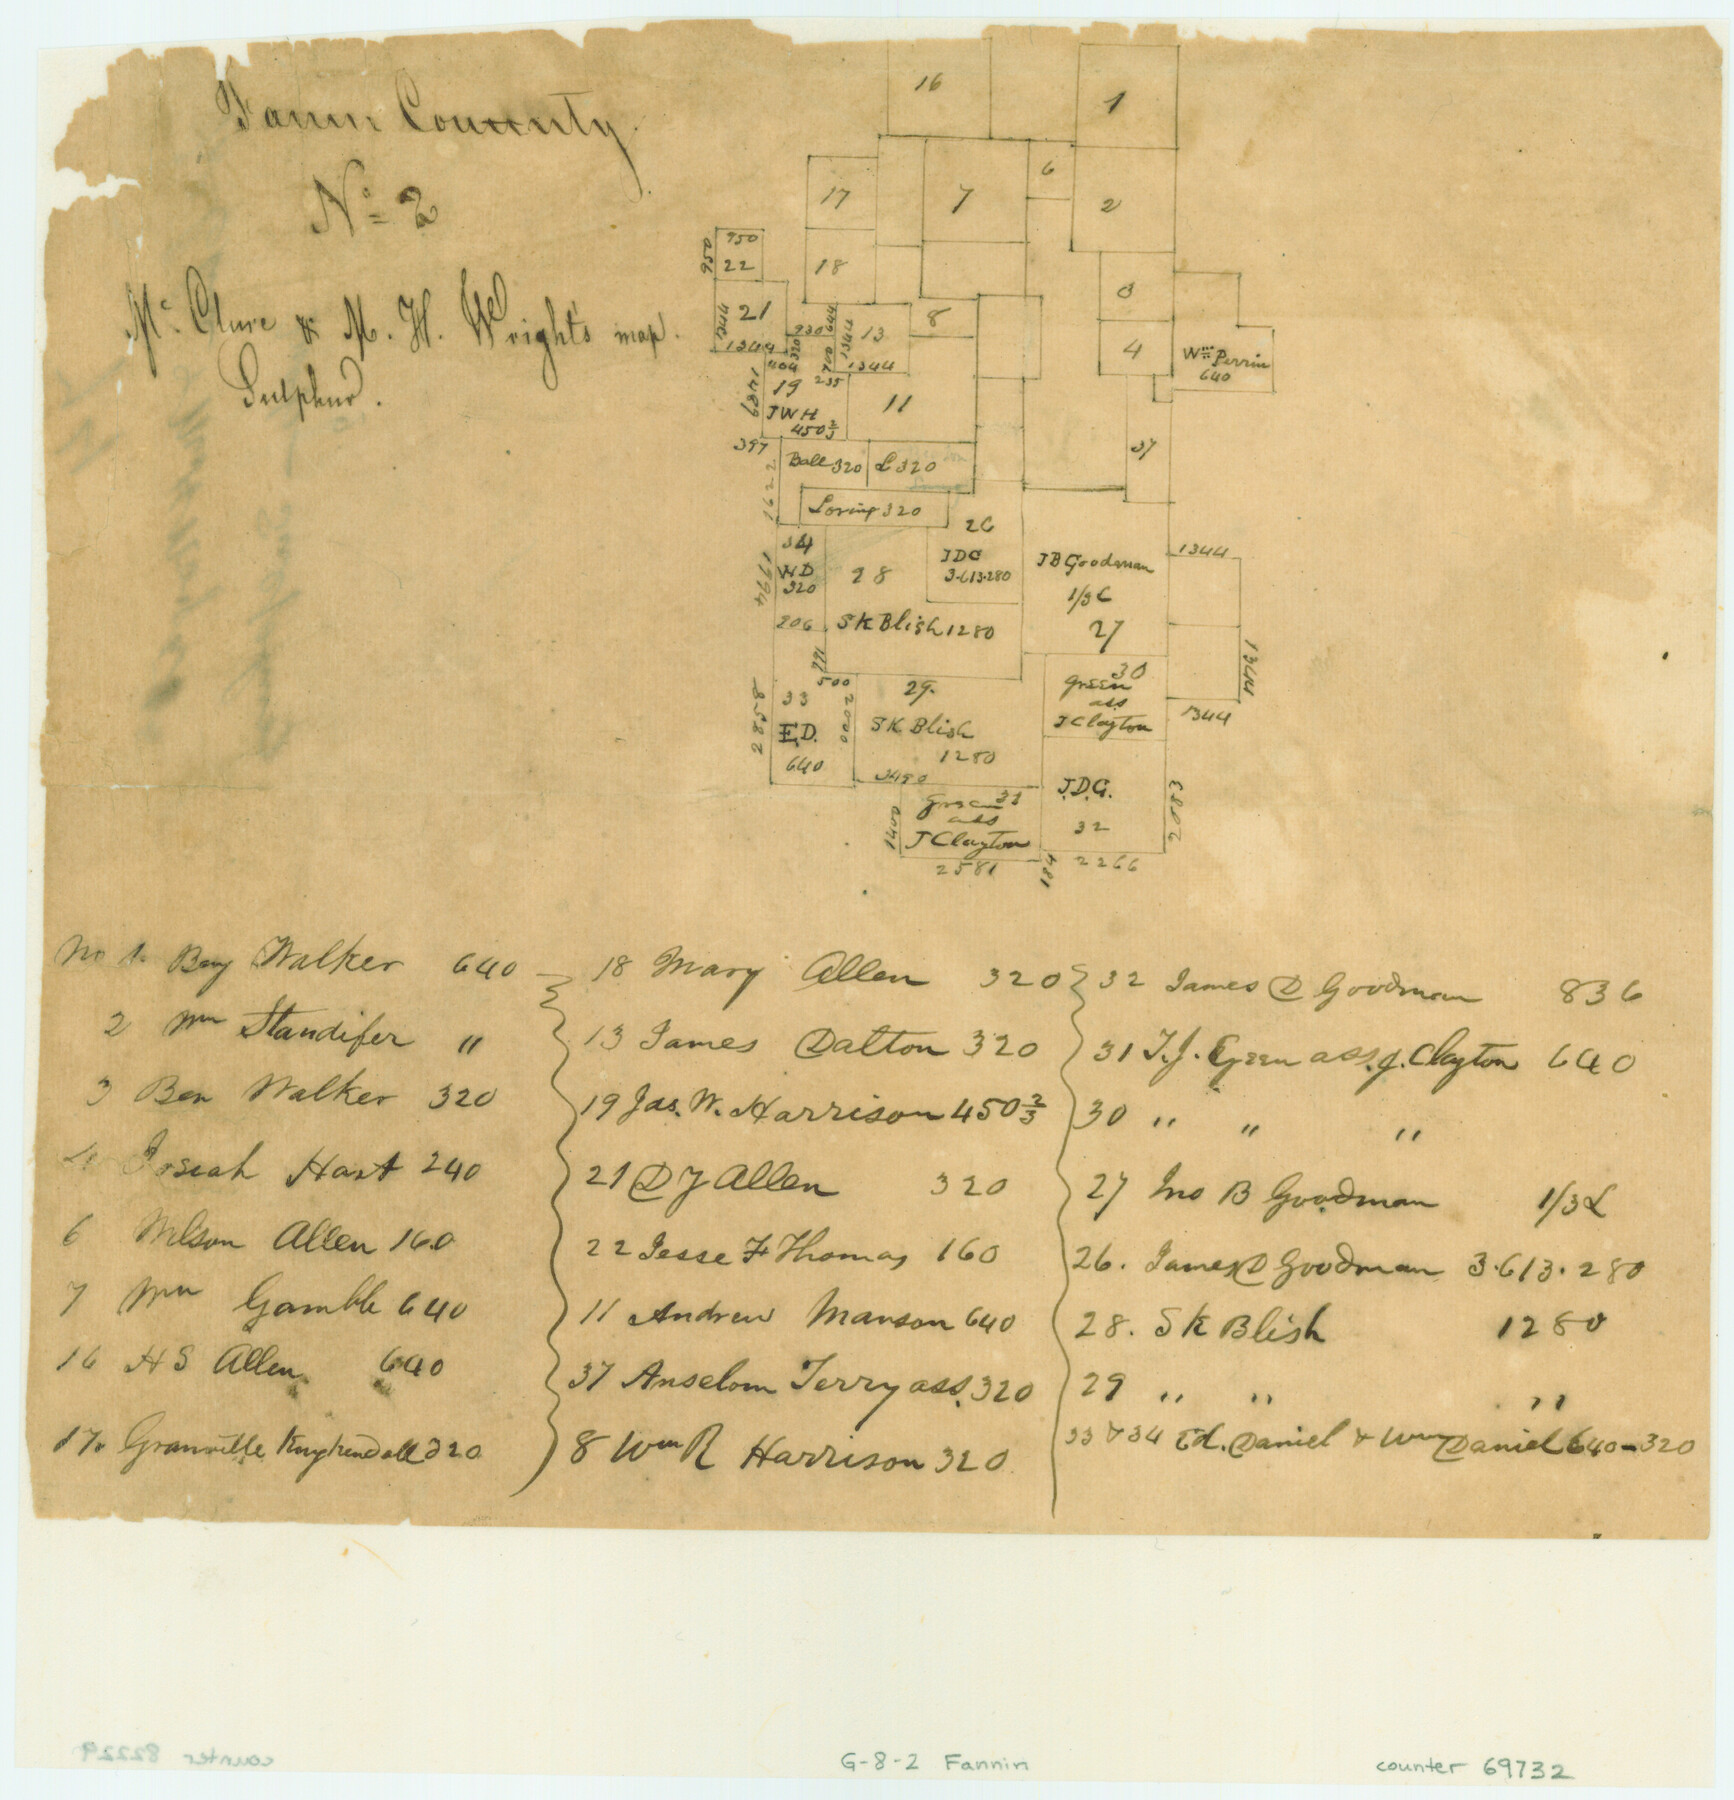 Fannin County.
No. 2
Mc Clure & M. H. Wright's map.
Sulphur.
16
1
6
17
7
2
950
950
22
18
3
21
1344
1344
930
644
1344
13
8
4
Wm Perrin
640
404
320
700
235
1344
1489
19
JWH
450 2/3
11
37
397
1622
Ball 320
L 320
Loving 320
26
34
WD
320
1794
28
JDG
3.613.280
JB Goodman
1/3 L
27
1344
206
SK Blish 1280
771
500
1344
30
Green
ass
J Clayton
1344
2858
33
E.D.
640
2020
29.
SK. Blish
1280
3450
Green 31
ass
J Clayton
1400
2581
J.D.G.
32
2083
184
2266
No 1. Benj Walker 640
2 Wm Standifer "
3 Ben Walker 320
4 Josiah Hart 240
6 Wilson Allen 160
7 Wm Gamble 640
16 H S Allen 640
17. Granville Kuykendall 320
18 Mary Allen 320
13 James Dalton 320
19 Jas. W. Harrison 450 2/3
21 D J Allen 320
22 Jesse F Thomas 160
11 Andrew Manson 640
37 Anselom Terry ass. 320
8 Wm R Harrison 320
32 James D Goodman 836
31 T.J. Green ass. J. Clayton 640
30 " " "
27 Jno B Goodman 1/3 L
26. James D Goodman 3.613.280
28. S K Blish 1280
29 " " "
33 & 34 Ed. Daniel & Wm Daniel 640-320
counter 82229
G-8-2 Fannin
counter 69732